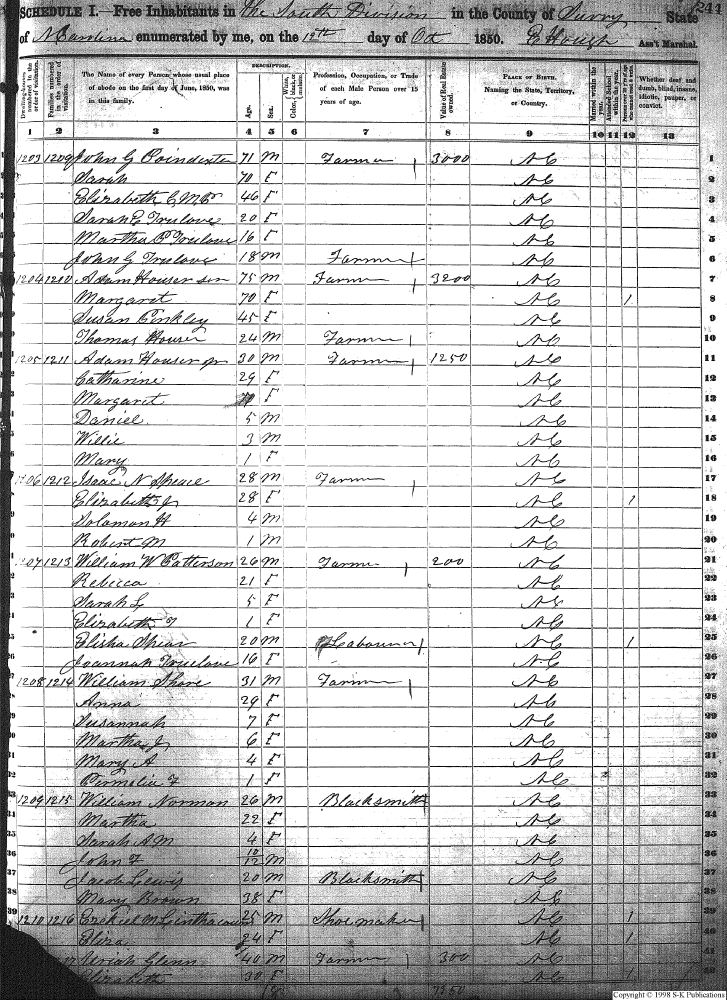 241
SCHEDULE I.—Free Inhabitants in the South Division in the County of Surry State
of N Carolina enumerated by me, on the 12th day of Oct 1850. E Housh Ass't Marshal.
Dwelling-houses numbered in the order of visitation.
Families numbered in the order of visitation.
The Name of every Person whose usual place of abode on the first day of June, 1850, was in this family.
DESCRIPTION.
Age.
Sex.
Color, White, black, or mulatto.
Profession, Occupation, or Trade of each Male Person over 15 years of age.
Value of Real Estate owned.
PLACE OF BIRTH. Naming the State, Territory, or Country.
Married within the year.
Attended School within the year.
Whether deaf and dumb, blind, insane, idiotic, pauper, or convict.
1 2 3 4 5 6 7 8 9 10 11 12 13
1203 1209 John G Poindexter 71 M Farmer 3000 NC 1
Sarah 70 F NC 2
Elizabeth C 46 F NC 3
Sarah E Truelove 20 F NC 4
Martha P Truelove 16 F NC 5
John G Truelove 18 M Farmer NC 6
1204 1210 Adam Houser sen 75 M Farmer 3200 NC 7
Margaret 70 F NC 1 8
Susan Binkley 45 F NC 9
Thomas Houser 24 M Farmer NC 10
1205 1211 Adam Houser jr 30 M Farmer 1250 NC 11
Catharine 29 F NC 12
Margaret F NC 13
Daniel 5 M NC 14
Willie 3 M NC 15
Mary 1 F NC 16
1206 1212 Isaac N Speace 28 M Farmer NC 17
Elizabeth J 28 F NC 1 18
Solomon H 4 M NC 19
Robert M 1 M NC 20
1207 1213 William W Patterson 26 M Farmer 200 NC 21
Rebecca 21 F NC 22
Sarah L 5 F NC 23
Elizabeth T 1 F NC 24
Elisha Spear 20 M Labourer NC 1 25
Joannah Truelove 16 F NC 26
1208 1214 William Shore 31 M Farmer NC 27
Anna 29 F NC 28
Susannah 7 F NC 29
Martha J 6 F NC 30
Mary A 4 F NC 31
Permelia F 1 F NC 32
1209 1215 William Norman 26 M Blacksmith NC 33
Martha 22 F NC 34
Sarah A M 4 F NC 35
John F 10/12 M NC 36
Jacob Lewis 20 M Blacksmith NC 37
Mary Brown 38 F NC 38
1210 1216 Ezekiel 25 M Shoe maker NC 1 39
Eliza 24 F NC 1 40
Glenn 40 M Farmer 300 NC 41
Elizabeth 30 F NC 1 42
7950
Copyright © 1998 S-K Publications